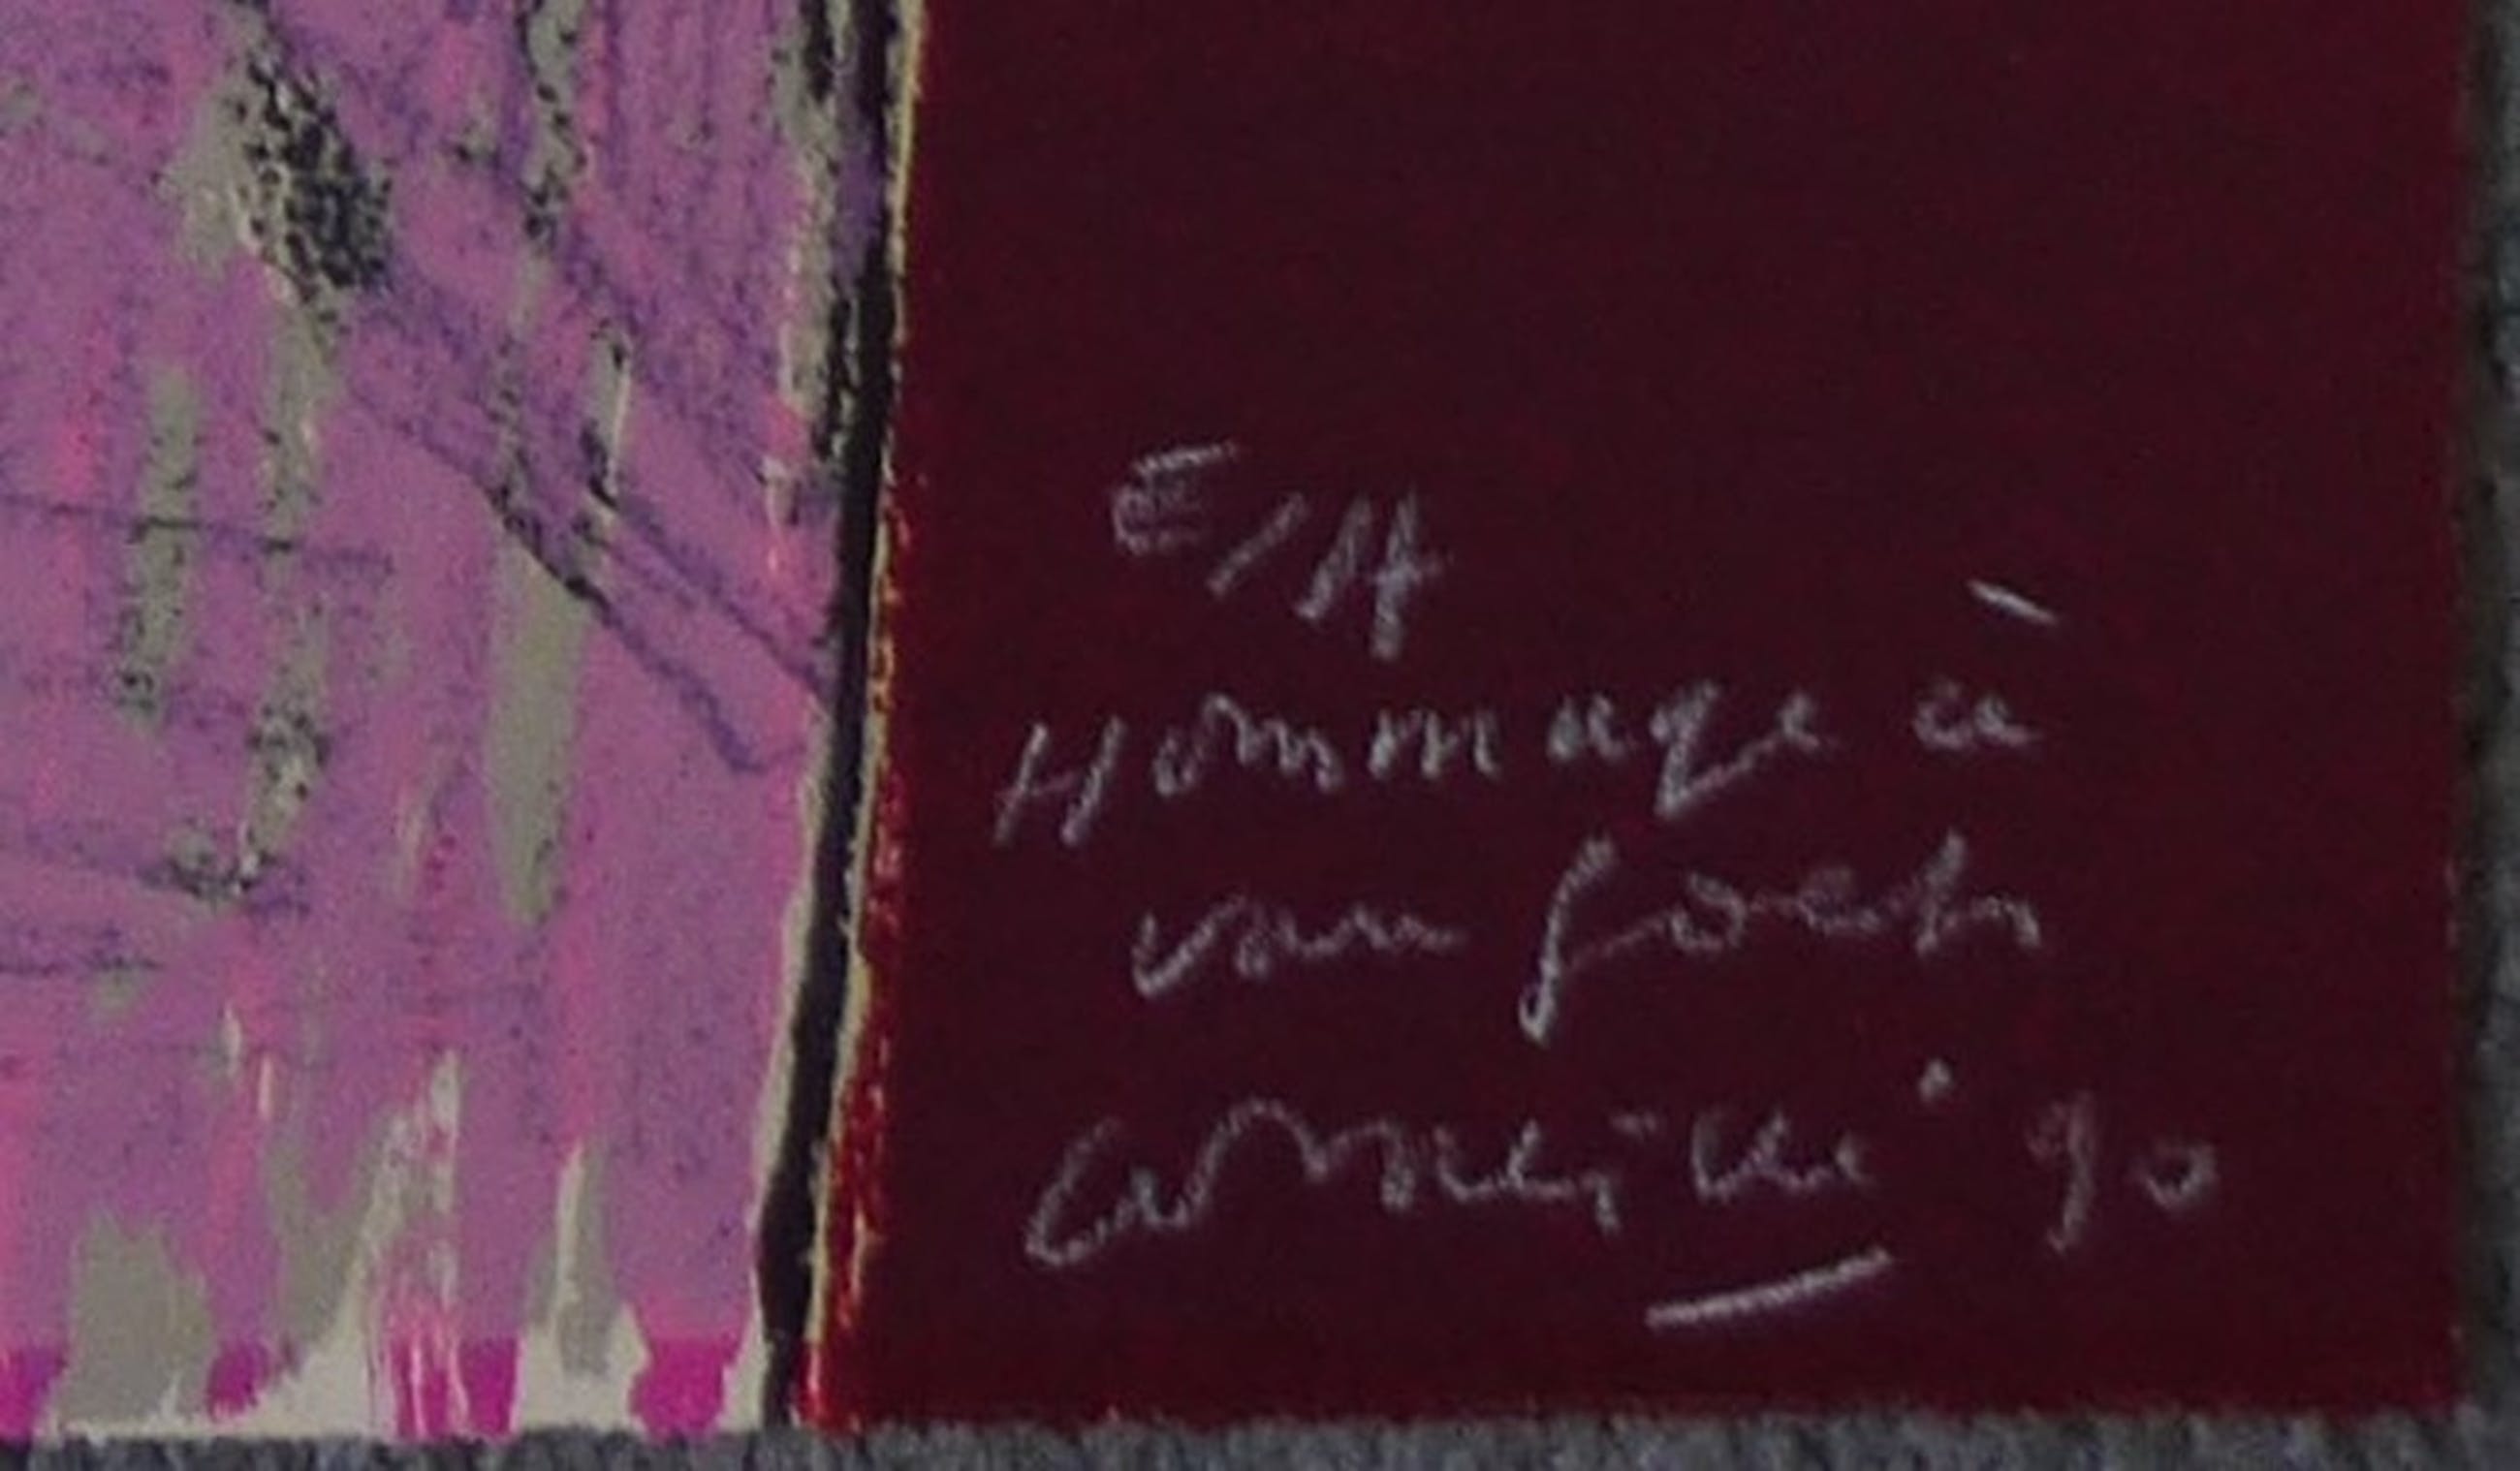 E/A
Hommage à
van Gogh
Corneille '90